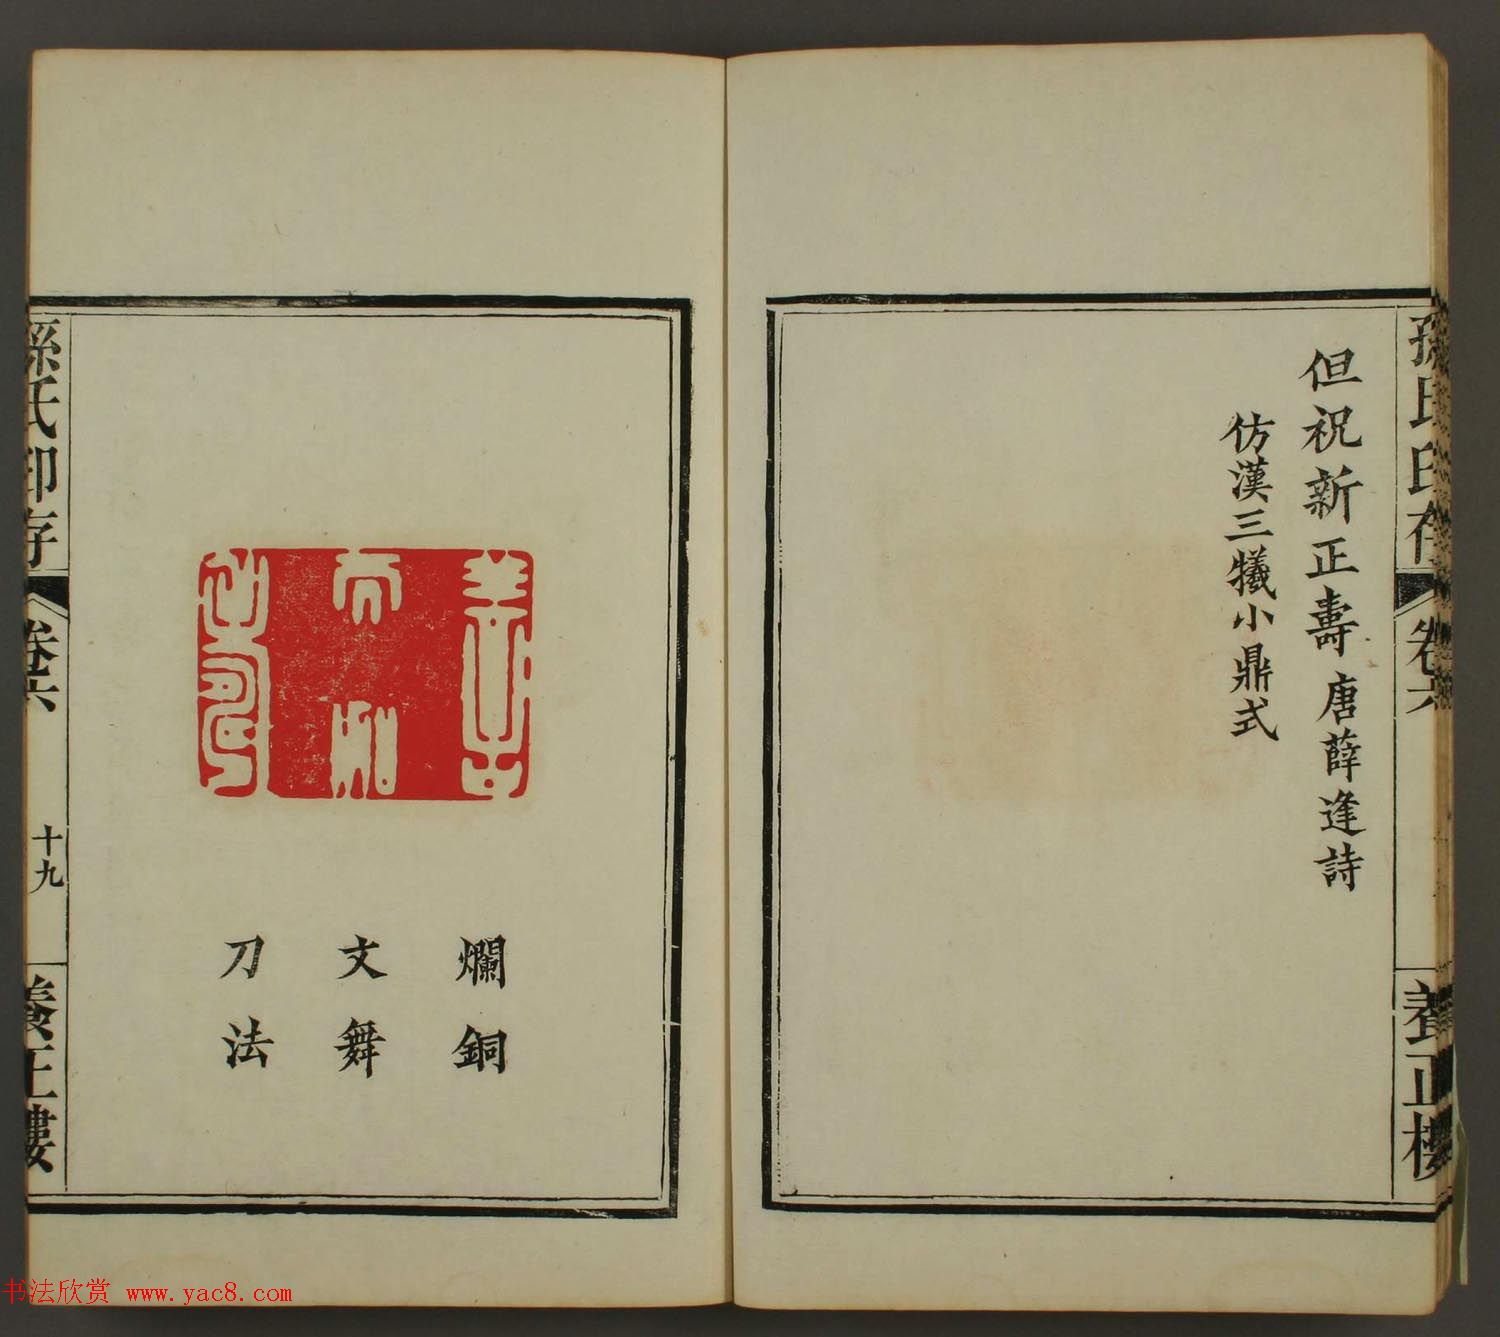 孫氏印存
卷六
養正樓
但祝新正壽唐薛逢詩
仿漢三犧小鼎式
爛銅
文舞
刀法
孫氏印存
卷六
十九
養正樓
书法欣赏 www.yac8.com